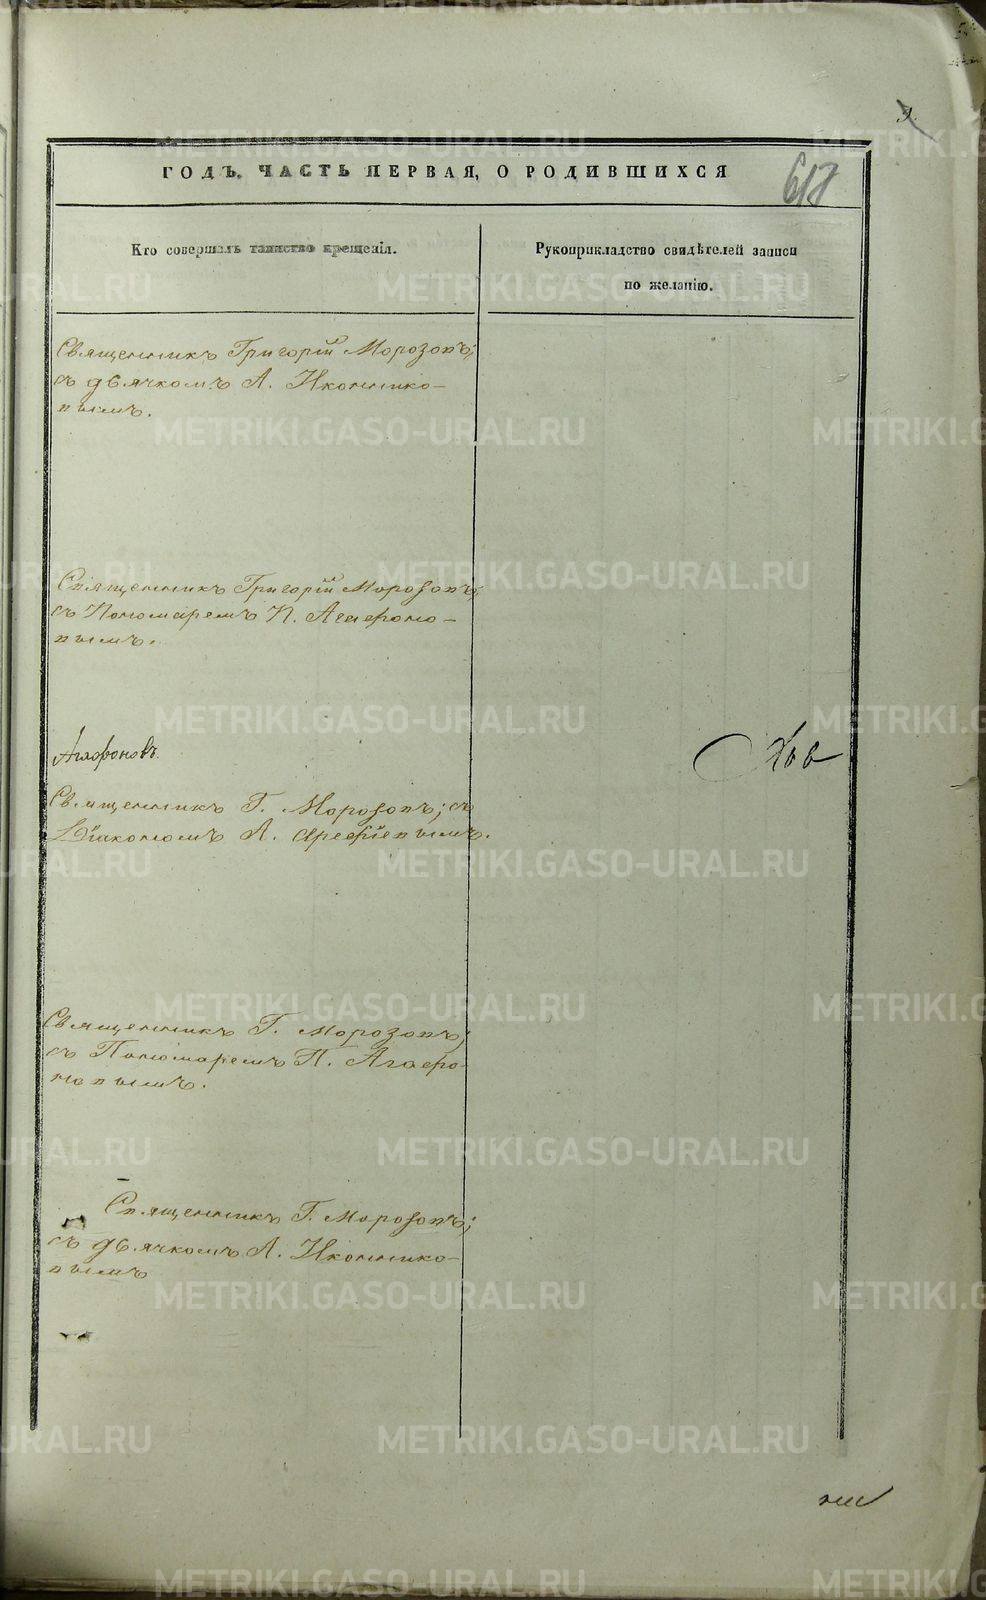 9.
617
ГОДЪ. ЧАСТЬ ПЕРВАЯ, О РОДИВШИХСЯ
Кто совершалъ таинство крещенія.
Рукоприкладство свидѣтелей записи
по желанію.
Священникъ Григорій Морозовъ;
съ дьячкомъ А. Иконнико-
вымъ.
Священникъ Григорій Морозовъ;
съ Пономаремъ П. Агафоно-
вымъ.
Агафоновъ.
Священникъ Г. Морозовъ; съ
Діакономъ А. Арефіевымъ.
Священникъ Г. Морозовъ;
съ Пономаремъ П. Агафо-
новымъ.
Священникъ Г. Морозовъ;
съ дьячкомъ А. Иконнико-
вымъ
METRIKI.GASO-URAL.RU